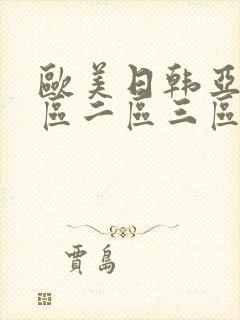 歐美日韩亞
區二區三區
賈島